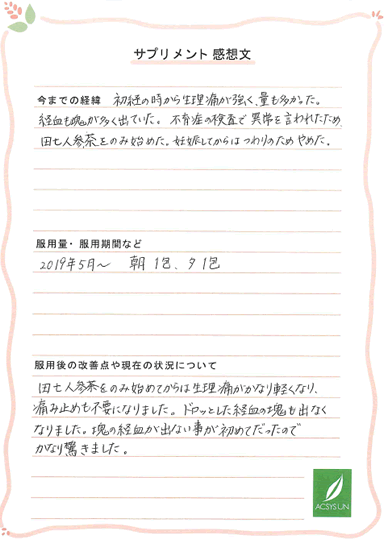 サプリメント 感想文
今までの経緯 初経の時から生理痛が強く、量も多かった。
経血も塊が多く出ていた。不育症の検査で異常を言われたため
田七人参茶をのみ始めた。妊娠してからはつわりのためやめた。
服用量・服用期間など
2019年5月〜 朝1包、夕1包
服用後の改善点や現在の状況について
田七人参茶をのみ始めてからは生理痛がかなり軽くなり、
痛み止めも不要になりました。ドロッとした経血の塊も出なく
なりました。塊の経血が出ない事が初めてだったので
かなり驚きました。
ACSYS UN